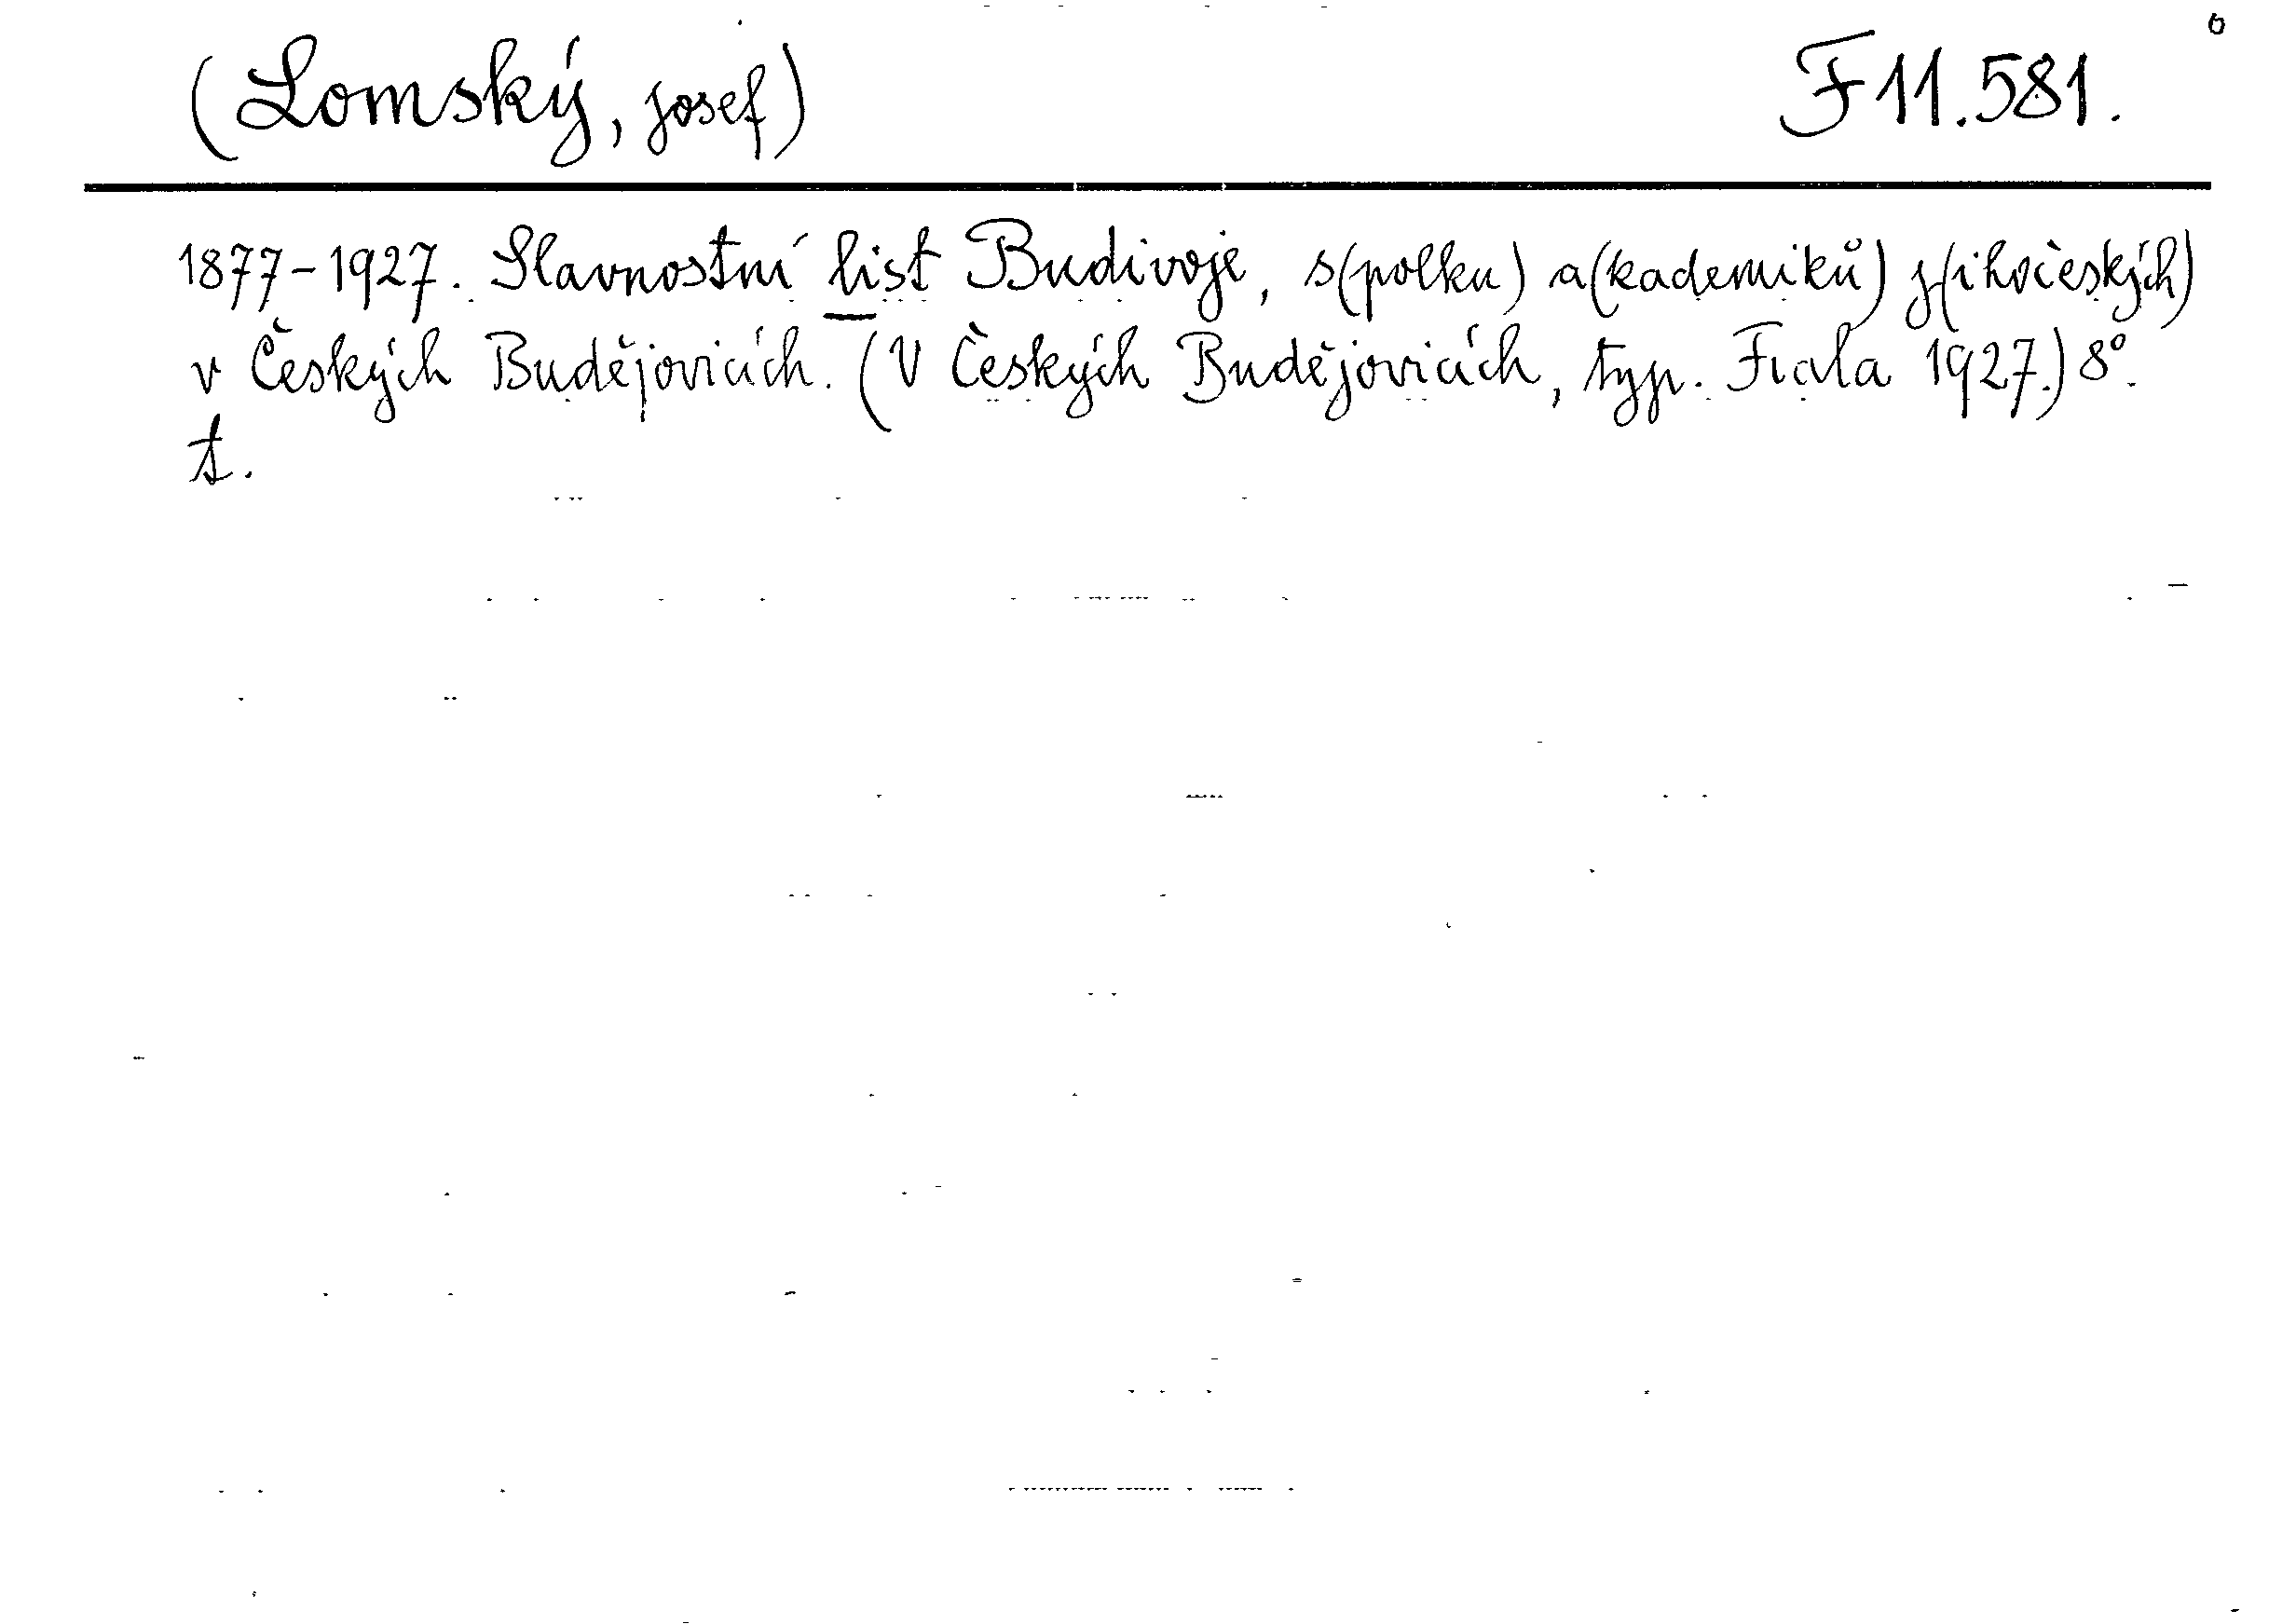 (Lomský, Josef) F 11.581.
1877-1927. Slavnostní list Budivoje, s(polku) a(kademiků) j(ihočeských)
v Českých Budějovicích. (V Českých Budějovicích, typ. Fiala 1927.) 8°.
t.